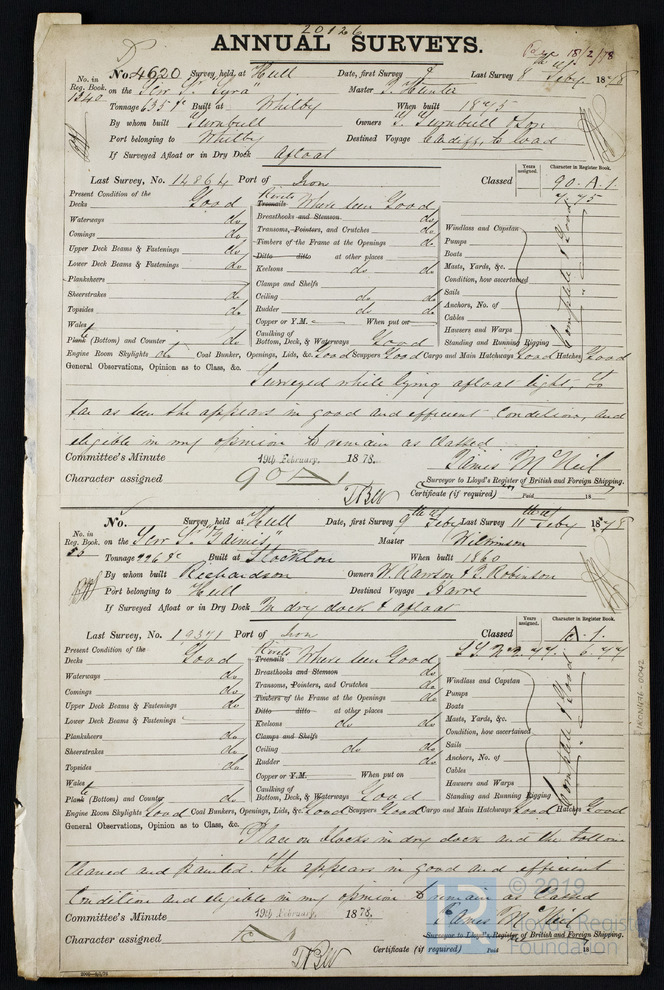 20126
ANNUAL SURVEYS.
18/2/78
No. 4620 Survey, held at Hull Date, first Survey 8 Last Survey 8th Feby. 1878
No. in Reg. Book. 1240 on the Scr Sr "Lyra" Master Hunter
Tonnage 635 Built at Whitby When built 1875
By whom built Turnbull Owners T. Turnbull & Son
Port belonging to Whitby Destined Voyage Cardiff, to load
If Surveyed Afloat or in Dry Dock Afloat
Last Survey, No. 14864 Port of Iron Classed 90.A.1.
Years assigned. Character in Register Book.
7,75
Present Condition of the
Decks Good
Waterways do
Comings do
Upper Deck Beams & Fastenings do
Lower Deck Beams & Fastenings do
Planksheers
Sheerstrakes do
Topsides do
Wales
Plank (Bottom) and Counter do
Rivets
Treenails Where seen Good
Breasthooks and Stemson do
Transoms, Pointers, and Crutches do
Timbers of the Frame at the Openings do
Ditto ditto at other places
Keelsons do do
Clamps and Shelfs
Ceiling do do
Rudder do do
Copper or Y.M. When put on
Caulking of Bottom, Deck, & Waterways Good
Windlass and Capstan
Pumps
Boats
Masts, Yards, &c.
Condition, how ascertained
Sails
Anchors, No. of
Cables
Hawsers and Warps
Standing and Running Rigging
Complete & Good
Engine Room Skylights do Coal Bunker, Openings, Lids, &c. Good Scuppers Good Cargo and Main Hatchways Good Hatches Good
General Observations, Opinion as to Class, &c.
Surveyed while lying afloat light, so
far as seen she appears in good and efficient Condition, and
eligible in my opinion to remain as Classed
Committee's Minute 19th February, 1878.
James McNeil
Character assigned 90 A 1
Surveyor to Lloyd's Register of British and Foreign Shipping.
Certificate (if required) Paid 18
No. Survey, held at Hull Date, first Survey 9th Feby Last Survey 11th Feby 1878
No. in Reg. Book. on the Scr Sr Master Wilkinson
Tonnage Built at Stockton When built 1860
By whom built Richardson Owners W. Rawson & J. Robinson
Port belonging to Hull Destined Voyage Havre
If Surveyed Afloat or in Dry Dock In dry dock & afloat
Last Survey, No. 19371 Port of Iron Classed A.1.
Years assigned. Character in Register Book.
6.77
Present Condition of the
Decks Good
Waterways do
Comings do
Upper Deck Beams & Fastenings do
Lower Deck Beams & Fastenings
Planksheers do
Sheerstrakes do
Topsides do
Wales
Plank (Bottom) and Counter do
Rivets
Treenails Where seen Good
Breasthooks and Stemson do
Transoms, Pointers, and Crutches do
Timbers of the Frame at the Openings do
Ditto ditto at other places
Keelsons do do
Clamps and Shelfs
Ceiling do do
Rudder do
Copper or Y.M. When put on
Caulking of Bottom, Deck, & Waterways Good
Windlass and Capstan
Pumps
Boats
Masts, Yards, &c.
Condition, how ascertained
Sails
Anchors, No. of
Cables
Hawsers and Warps
Standing and Running Rigging
Complete & Good
Engine Room Skylights Good Coal Bunkers, Openings, Lids, &c. Good Scuppers Good Cargo and Main Hatchways Good Hatches Good
General Observations, Opinion as to Class, &c.
Place on blocks in dry dock and the bottom
cleaned and painted. She appears in good and efficient
Condition and eligible in my opinion to remain as Classed
Committee's Minute 19th February, 1878.
James McNeil
Character assigned
Surveyor to Lloyd's Register of British and Foreign Shipping.
Certificate (if required) Paid 18
LR
© 2019
Lloyd's Register
Foundation